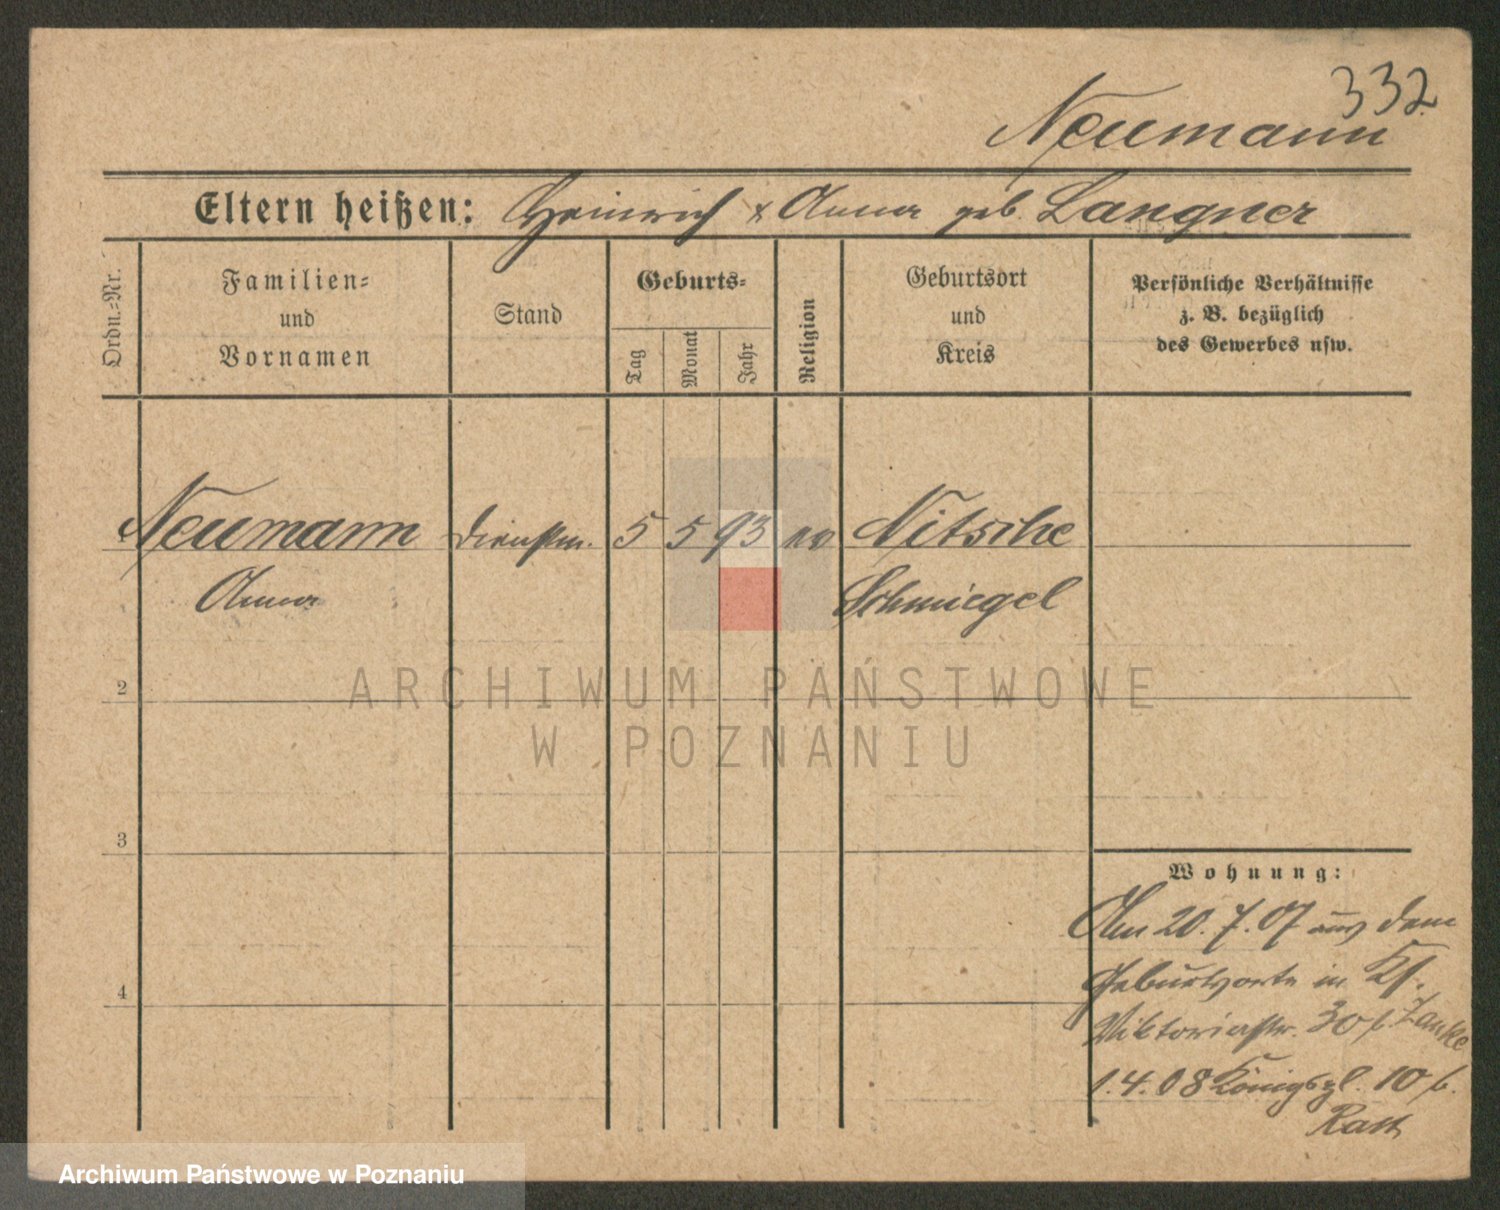 332
Neumann
Eltern heißen: Heinrich & Anna geb. Langner
Ordn.=Nr.
Familien=
und
Vornamen
Stand
Geburts=
Tag
Monat
Jahr
Religion
Geburtsort
und
Kreis
Persönliche Verhältnisse
z. B. bezüglich
des Gewerbes usw.
1 Neumann Dienstm. 5 5 93 ev Nitsche
Anna Schmiegel
2
ARCHIWUM PAŃSTWOWE
W POZNANIU
3
Wohnung:
Am 20.7.07 aus dem
4
Geburtsorte in
Viktoriastr. 30 b. Zanke
1.4.08 Königspl. 10 b.
Archiwum Państwowe w Poznaniu